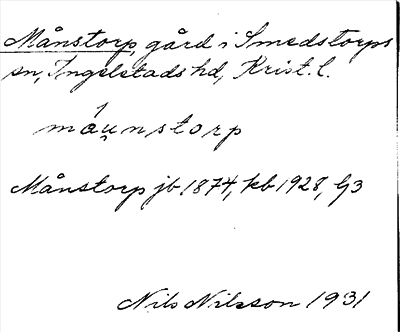 Månstorp, gård i Smedstorps
sn, Ingelstads hd, Krist. l.
má u̯nstorp
Månstorp jb 1874, kb 1928, G3
Nils Nilsson 1931